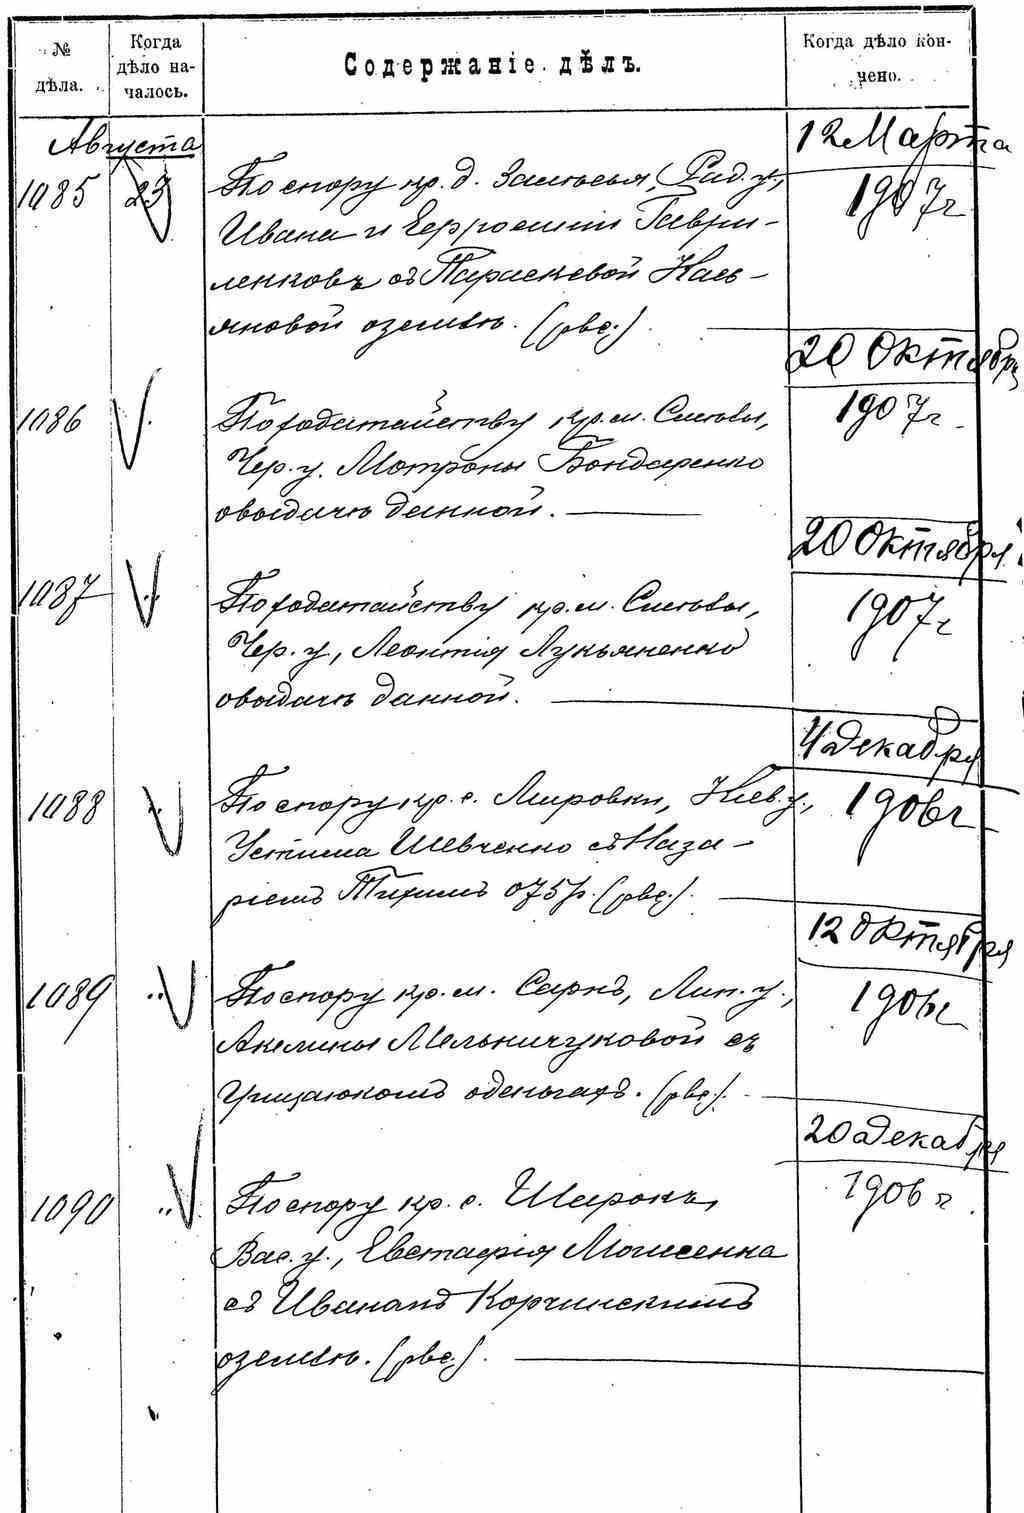 № дѣла.
Когда дѣло началось.
Содержаніе дѣлъ.
Когда дѣло кончено.
Августа
12 Марта
1085 23 По спору кр. д. Залѣсья, Рад. у.,
1907 г
Ивана и Евфросиніи Гаври-
ленковъ съ Параскевой Кась-
яновой о землѣ. (рвс.).
20 Октября
1086 По ходатайству кр. м.
1907 г.
Чер. у. Мотроны Бондаренко
о выдачѣ данной.
20 Октября
1087 По ходатайству кр. м.
1907 г
Чер. у., Леонтія Лукьяненко
о выдачѣ данной.
4 Декабря
1088 По спору кр. с. Мировки, Кіев. у.,
1906 г
Устима Шевченко съ Наза-
ріемъ Тихимъ о 75 р. (рвс.).
12 Октября
1089 По спору кр. м. Сарнъ, Лип. у.,
1906 г
Акелины Мельничуковой съ
о деньгахъ. (рвс.).
20 Декабря
1090 По спору кр. с.
1906 г.
Вас. у., Евстафія Моисеенка
съ Иваномъ Корчинскимъ
о землѣ. (рвс.).